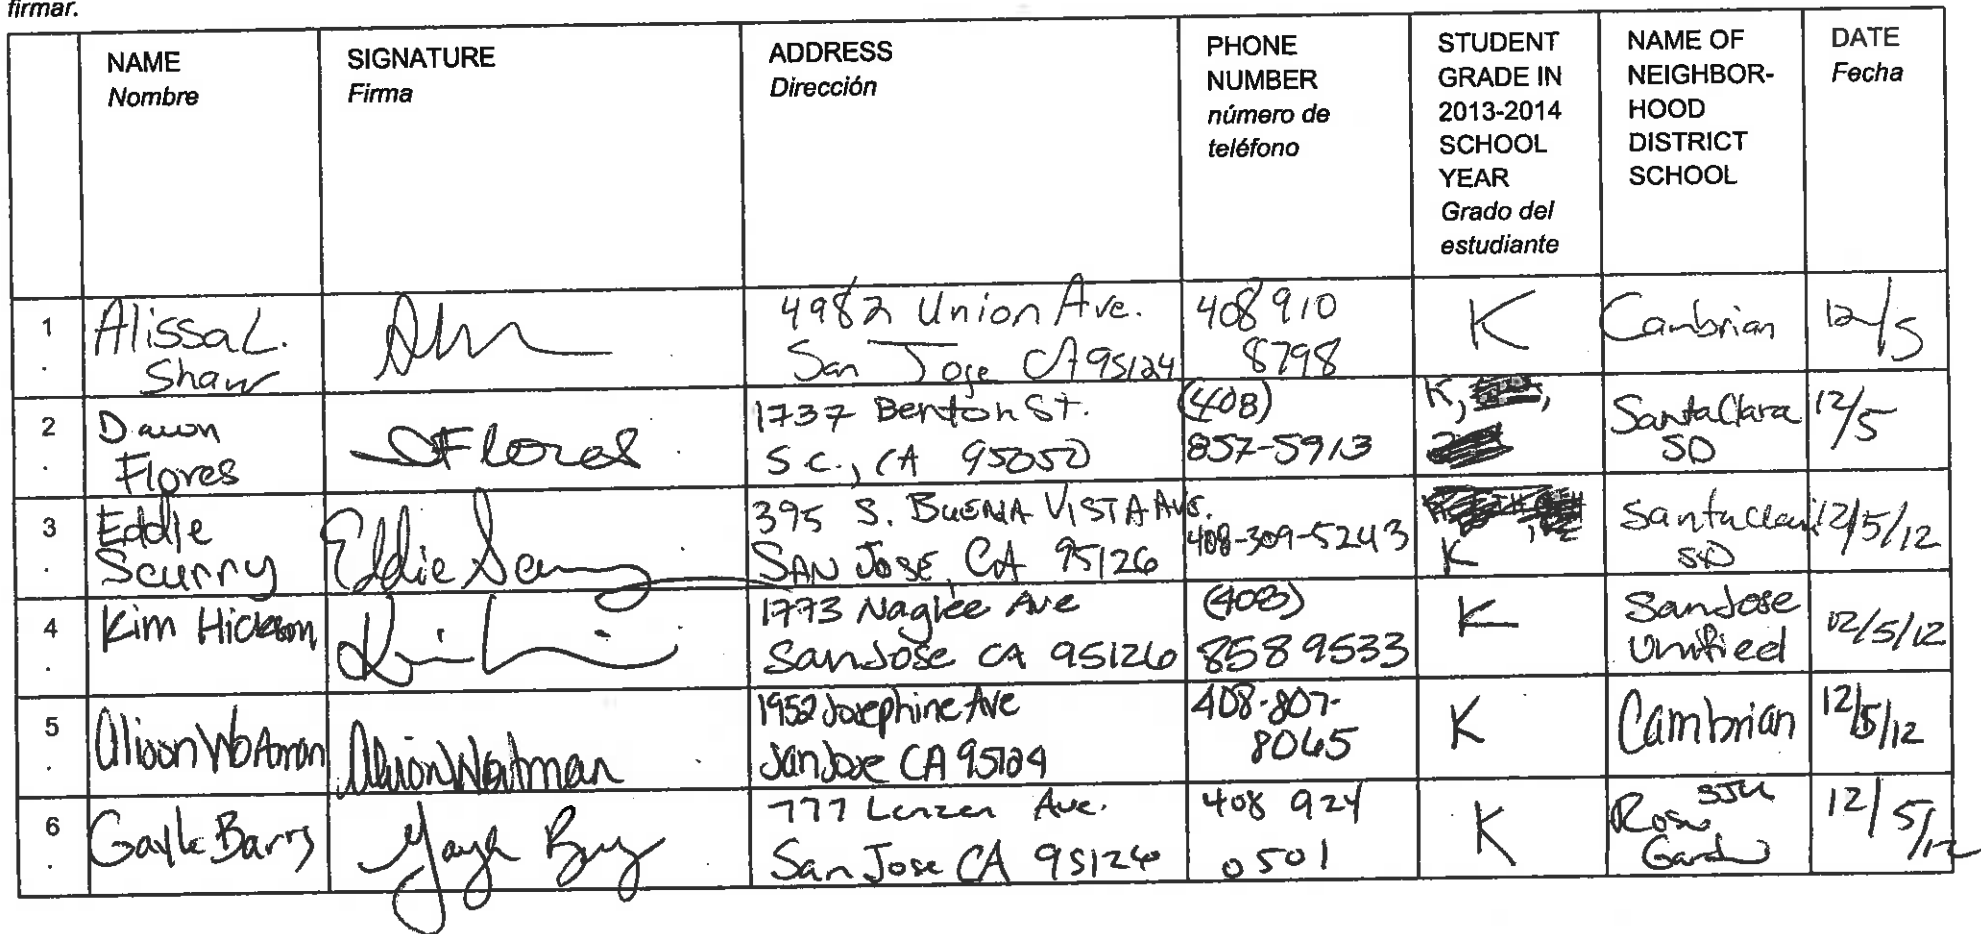 firmar.
NAME
Nombre
SIGNATURE
Firma
ADDRESS
Dirección
PHONE
NUMBER
número de
teléfono
STUDENT
GRADE IN
2013-2014
SCHOOL
YEAR
Grado del
estudiante
NAME OF
NEIGHBOR-
HOOD
DISTRICT
SCHOOL
DATE
Fecha
1
.
Alissa L.
Shaw
4982 Union Ave.
San Jose CA 95124
408 910
8798
K
Cambrian
12/5
2
.
Dawn
Flores
Flores
1737 Benton St.
S.C., CA 95050
(408)
857-5913
K,
Santa Clara
SD
12/5
3
.
Eddie
Scurry
Eddie
395 S. BUENA VISTA AVE.
SAN JOSE, CA 95126
408-309-5243
K
Santa Clara
SD
12/5/12
4
.
Kim
1773 Naglee Ave
San Jose CA 95126
(408)
858 9533
K
San Jose
Unified
12/5/12
5
.
Alison
Alison
1952 Josephine Ave
San Jose CA 95124
408-807-
8065
K
Cambrian
12/5/12
6
.
Gayle Barry
777 Lenzen Ave.
San Jose CA 95126
408 924
0501
K
SJU
Rose
Garden
12/5/12